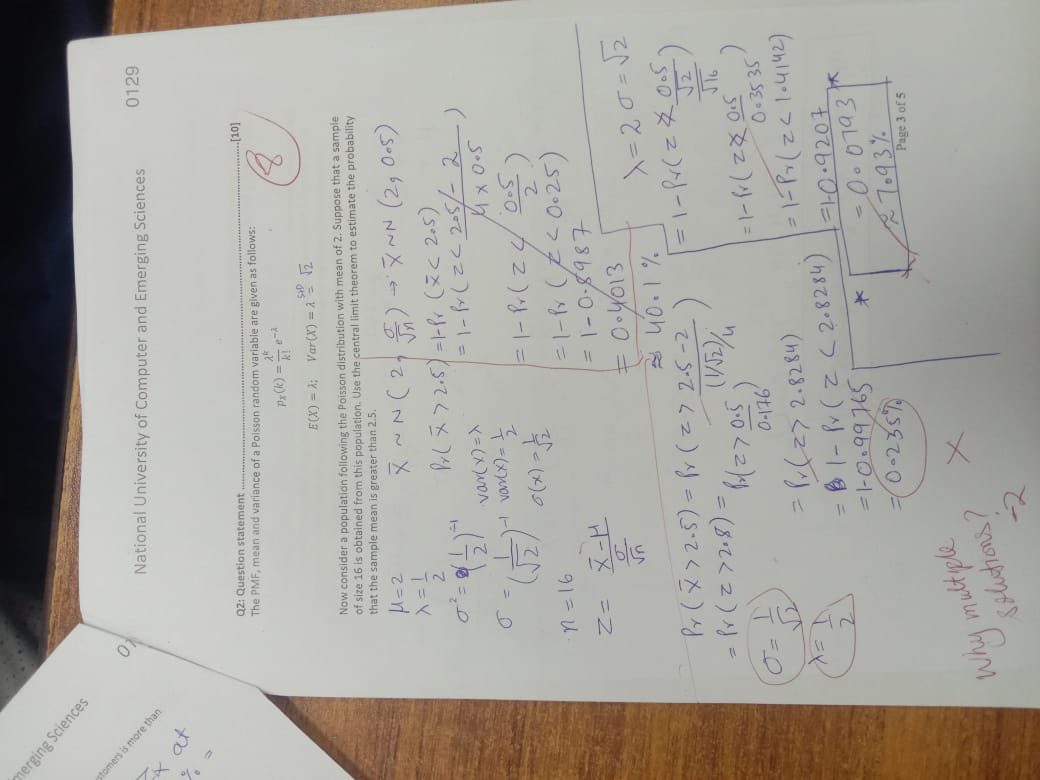 National University of Computer and Emerging Sciences
0129
Q2: Question statement ...............[10]
8
The PMF, mean and variance of a Poisson random variable are given as follows:
p_X(k) = λ^k/k! e^-λ
E(X) = λ; Var(X) = λ
STD = √2
Now consider a population following the Poisson distribution with mean of 2. Suppose that a sample
of size 16 is obtained from this population. Use the central limit theorem to estimate the probability
that the sample mean is greater than 2.5.
μ=2
λ=1/2
σ² = (1/2)^-1
σ = (1/√2)^-1
var(x)=λ
var(x)=1/2
σ(x)=1/√2
n=16
Z= (x̄-μ)/(σ/√n)
x̄ ~ N(2, σ/√n) → x̄ ~ N(2, 0.5)
Pr(x̄ > 2.5) = 1-Pr(x̄ < 2.5)
= 1-Pr(z < (2.5 - 2)/(4 x 0.5))
= 1-Pr(z < 0.5/2)
= 1-Pr(z < 0.25)
= 1-0.5987
= 0.4013
≈ 40.1%
Pr(x̄ > 2.5) = Pr(z > (2.5-2)/((1/√2)/4))
= Pr(z > 2.8) = Pr(z > 0.5/0.176)
= Pr(z > 2.8284)
= 1-Pr(z < 2.8284)
=1-0.99765
= 0.235%
σ = 1/√2
λ = 1/2
λ=2 σ=√2
= 1-Pr(z < 0.5/(√2/√16))
= 1-Pr(z < 0.5/0.3535)
= 1-Pr(z < 1.4142)
= 1-0.9207
* = 0.0793 *
≈ 7.93%
Page 3 of 5
Why multiple
solutions?
-2
merging Sciences
stomers is more than